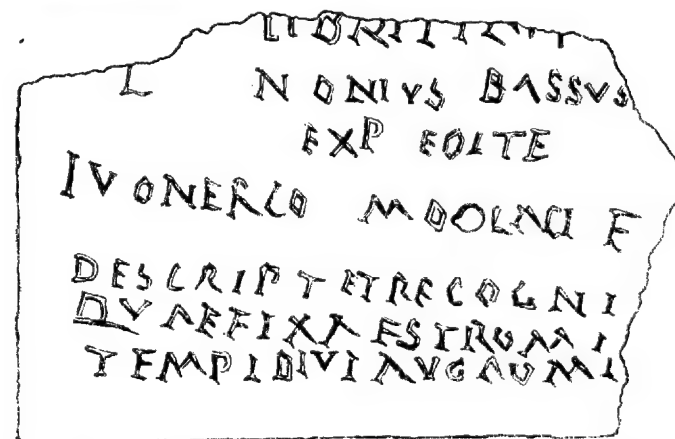 L NONIVS BASSVS
EXP EOLTE
IVONERCO MOOLACI F
DESCRIPT ET RECOGNI
QVAE FIXA EST ROMAI
TEMPI DIVI AVG AUMI